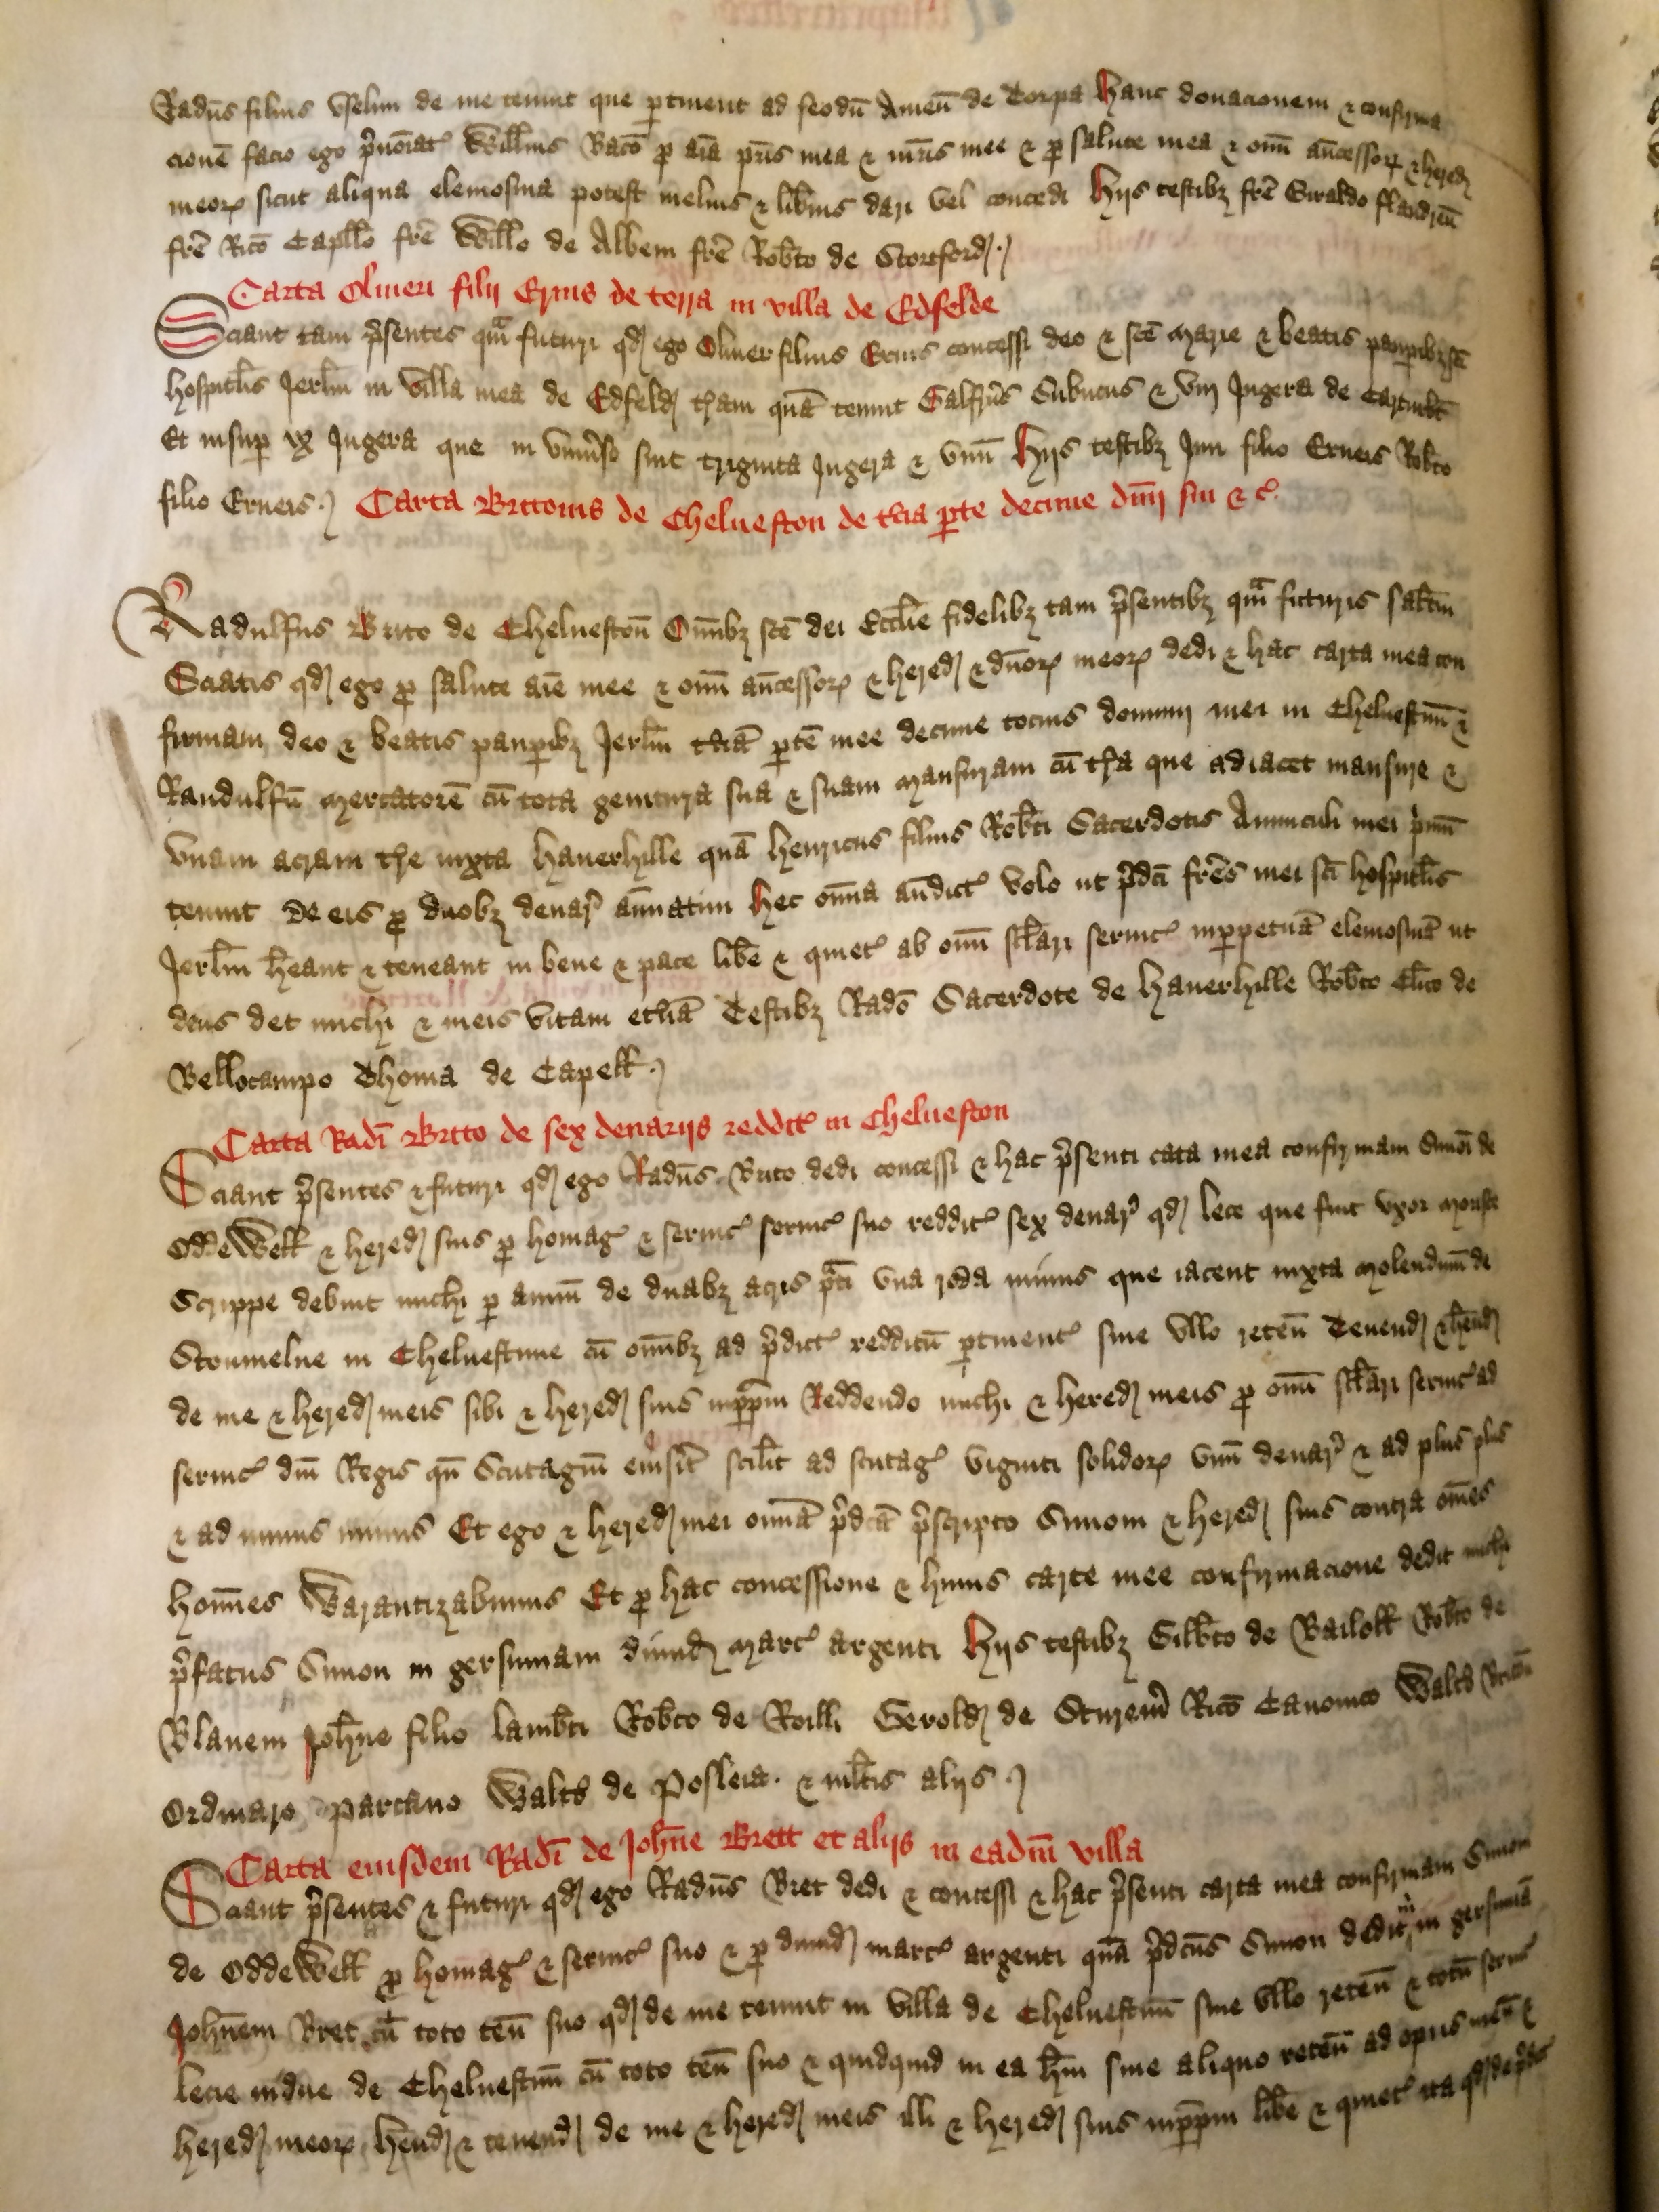 Radūs filius Uselini de me tenuit que ptinent ad feodū Ameū de Torpa Hanc donacionem & confirma
cionē facio ego p̄noīat' Willms Bacō p aīa pr̄is mea & mr̄is mee & p salute mea & om̄ ān̄cessoꝝ & hered̄
meoꝝ sicut aliqua elemosina potest melius & lib̄ius dari vel concedi Hijs testibꝫ frē Giraldo flandren̄
frē Ricō Capllo frē Willo de Albem frē Rob̄to de Stortford̄
Carta Oliueri filij Ernis de terra in villa de Edfelde
Sciant tam p̄sentes qm̄ futuri qd̄ ego Oliuer filius Ernis concessi deo & scē Marie & beatis paupibꝫ scī
hospitlis Jerlm̄ in villa mea de Edfeld̄ tr̄am quā tenuit Galfrūs Subutus & viij Jugera de
Et insup ix Jugera que in vniūso sint triginta Jugera & vnū Hijs testibꝫ filio Erneis Rob̄to
filio Erneis Carta Brittonis de Chelueston de t̄cia pte decime dn̄ij sui & c̄
Radulfus Brito de Chelueston̄ Omībꝫ scē dei Ecclīe fidelibꝫ tam p̄sentibꝫ qm̄ futuris saltm̄
Sciatis qd̄ ego p salute aīe mee & om̄ ān̄cessoꝝ & hered̄ & dn̄oꝝ meoꝝ dedi & hac carta mea con
firmam deo & beatis paupibꝫ Jerlm̄ t̄ciā ptē mee decime tocius dominij mei in Cheluestun̄ &
Randulfū mercatorē cū tota genitura sua & suam mansuram cū tr̄a que adiacet mansure &
vnam acram tr̄e iuxta Hauerhille quā Henricus filius Rob̄ti Sacerdotis Auunculi mei p̄mū
tenuit de eis p duobꝫ denar̄ annatim Hec om̄ia aūdict' volo ut p̄dcī frēs mei scī hospitlis
Jerlm̄ hēant & teneant in bene & pace lib̄e & quiet' ab om̄ sclari seruic' inppetuā elemosinā ut
deus det michi & meis vitam et̄nā Testibꝫ Radō Sacerdote de Hauerhille Rob̄to Clīco de
Bellocampo Thoma de Capell
Carta Radī Britto de sex denarijs reddit' in Chelueston
Sciant p̄sentes & futuri qd̄ ego Radūs Brito dedi concessi & hac p̄senti cata mea confirmam Simōi de
Oddewell & hered̄ suis p homag' & seruic' seruic' suo reddit' sex denar̄ qd̄ lece que fuit vxor
Scrippe debuit michi p annū de duabꝫ acris pt̄i vna roda minus que iacent iuxta molendinū de
Stonmelne in Cheluestune cū om̄ibꝫ ad p̄dict' redditū ptinent' sine vllo reten̄ Tenend̄ & hēnd̄
de me & hered̄ meis sibi & hered̄ suis inppm̄ Reddendo michi & hered̄ meis p om̄i sclari seruic' ad
seruic' dn̄i Regis qn̄ Scutagiū scilt̄ ad scutag' viginti solidoꝝ vnū denar̄ & ad plus plus
& ad minus minus Et ego & hered̄ mei om̄iā p̄dcā p̄scripto Simoni & hered̄ suis contra om̄es
hom̄es Warantizabimus Et p hac concessione & huius carte mee confirmacione dedit michi
p̄fatus Simon in gersumam dimid̄ marc' argenti Hijs testibꝫ Gilb̄to de Bailoll Rob̄to de
Blauem Joh̄ne filio lamb̄ti Rob̄to de Roilli Gerold̄ de Sturem̄ Ricō Canonico Waltō
Ordinaro Parcano Waltō de Posleia & mltīs alijs
Carta eiusdem Radī de Joh̄ne Brett et alijs in eadm̄ villa
Sciant p̄sentes & futuri qd̄ ego Radūs Bret dedi & concessi & hac p̄senti carta mea confirmam Simoni
de Oddewell p homag' & seruic' suo & p dimid̄ marc' argenti quā p̄dcūs Simon dedit m̄ in gersumā
Joh̄nem Bret cū toto ten̄ suo qd̄ de me tenuit in villa de Cheluestun̄ sine vllo reten̄ & totū seruic'
lecie vidue de Cheluestun̄ cū toto ten̄ suo & quidquid in ea hūi sine aliquo reten̄ ad opus meū &
hered̄ meoꝝ hēnd̄ & tenend̄ de me & hered̄ meis illi & hered̄ suis inppm̄ lib̄e & quiet' ita qd̄